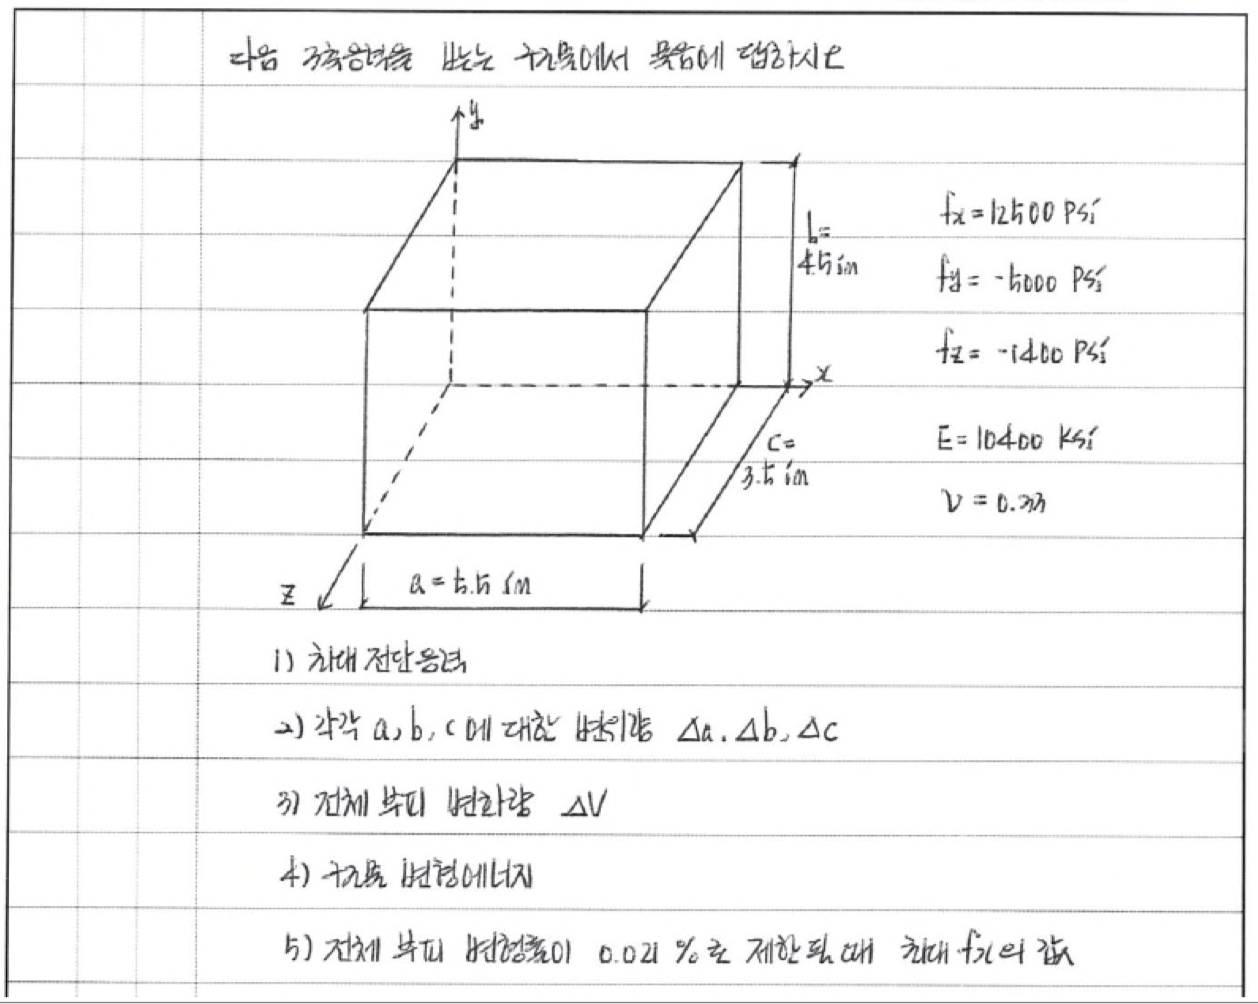 다음 3축응력을 받는 구조물에서 물음에 답하시오
y
b=
4.5 in
fx = 12500 Psi
fy = -5000 Psi
fz = -1400 Psi
x
c=
3.5 in
E = 10400 ksi
ν = 0.33
z
a = 5.5 in
1) 최대 전단응력
2) 각각 a, b, c에 대한 변위량 Δa. Δb, Δc
3) 전체 부피 변화량 ΔV
4) 구조물 변형에너지
5) 전체 부피 변형률이 0.021 %로 제한될 때 최대 fx의 값